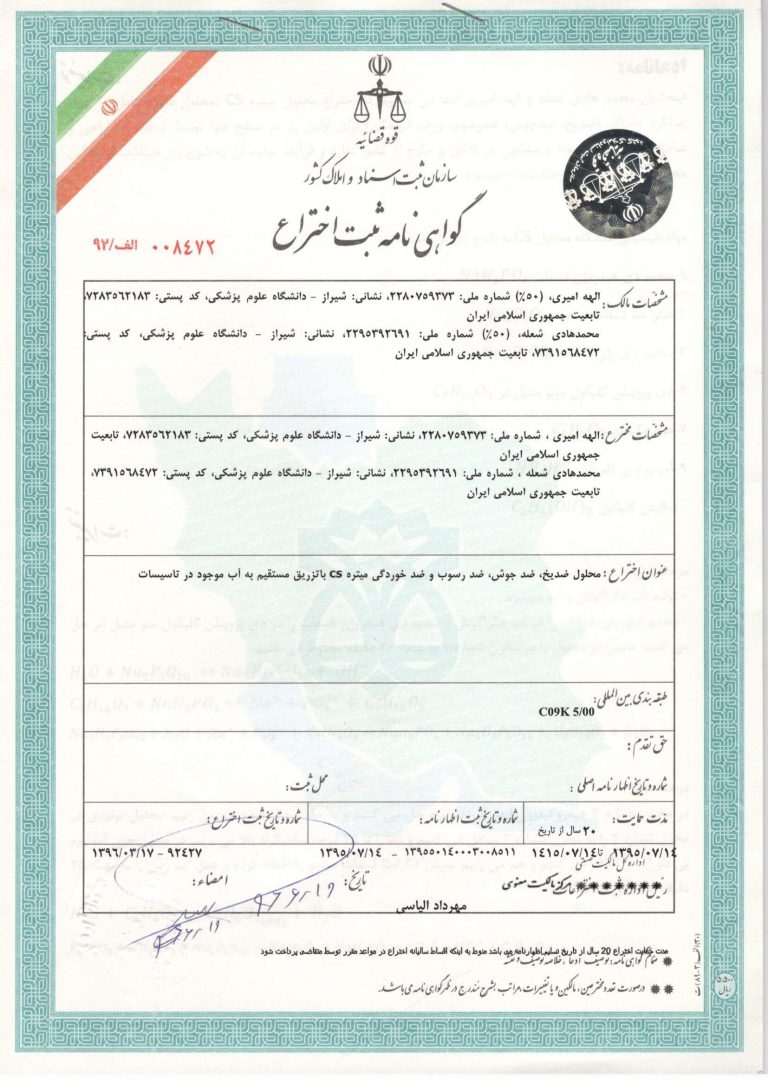 قوه قضائیه
سازمان ثبت اسناد و املاک کشور
گواهی نامه ثبت اختراع
۰۰۸۴۷۲ الف/۹۲
مشخصات مالک: الهه امیری، (۵۰٪) شماره ملی: ۲۲۸۰۷۵۹۳۷۳، نشانی: شیراز - دانشگاه علوم پزشکی، کد پستی: ۷۲۸۳۵۶۲۱۸۳،
تابعیت جمهوری اسلامی ایران
محمدهادی شعله، (۵۰٪) شماره ملی: ۲۲۹۵۳۹۲۶۹۱، نشانی: شیراز - دانشگاه علوم پزشکی، کد پستی:
۷۳۹۱۵۶۸۴۷۲، تابعیت جمهوری اسلامی ایران
مشخصات مخترع: الهه امیری ، شماره ملی: ۲۲۸۰۷۵۹۳۷۳، نشانی: شیراز - دانشگاه علوم پزشکی، کد پستی: ۷۲۸۳۵۶۲۱۸۳، تابعیت
جمهوری اسلامی ایران
محمدهادی شعله ، شماره ملی: ۲۲۹۵۳۹۲۶۹۱، نشانی: شیراز - دانشگاه علوم پزشکی، کد پستی: ۷۳۹۱۵۶۸۴۷۲،
تابعیت جمهوری اسلامی ایران
عنوان اختراع: محلول ضدیخ، ضد جوش، ضد رسوب و ضد خوردگی میتره CS باتزریق مستقیم به آب موجود در تاسیسات
طبقه بندی بین المللی: C09K 5/00
حق تقدم:
شماره و تاریخ اظهارنامه اصلی: محل ثبت:
مدت حمایت: شماره و تاریخ ثبت اظهارنامه: شماره و تاریخ ثبت اختراع:
۲۰ سال از تاریخ
۱۳۹۵/۰۷/۱۴ تا ۱۴۱۵/۰۷/۱۴ ۱۳۹۵۵۰۱۴۰۰۰۳۰۰۸۵۱۱ ۱۳۹۵/۰۷/۱۴ ۹۲۴۲۷ - ۱۳۹۶/۰۳/۱۷
اداره کل مالکیت صنعتی
مرکز مالکیت معنوی
تاریخ: امضاء:
مهرداد الیاسی
مدت حمایت اختراع 20 سال از تاریخ تسلیم اظهارنامه می باشد منوط به اینکه اقساط سالیانه اختراع در مواعد مقرر توسط متقاضی پرداخت شود
ضمائم گواهی نامه: توصیف، ادعا، خلاصه توصیف و نقشه
درصورت تعدد مخترعین، مالکین و یا تغییرات، مراتب بشرح مندرج در ظهر گواهی نامه می باشد.
ریال